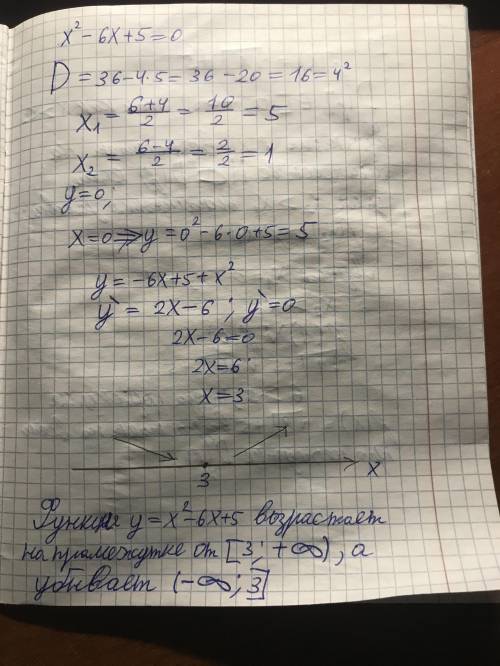 x² - 6x + 5 = 0
D = 36 - 4·5 = 36 - 20 = 16 = 4²
x₁ = (6+4)/2 = 10/2 = 5
x₂ = (6-4)/2 = 2/2 = 1
y = 0;
x = 0 ⇒ y = 0² - 6·0 + 5 = 5
y = -6x + 5 + x²
y` = 2x - 6 ; y` = 0
2x - 6 = 0
2x = 6
x = 3
3
x
Функция y = x² - 6x + 5 возрастает
на промежутке от [3; +∞), а
убывает (-∞; 3]